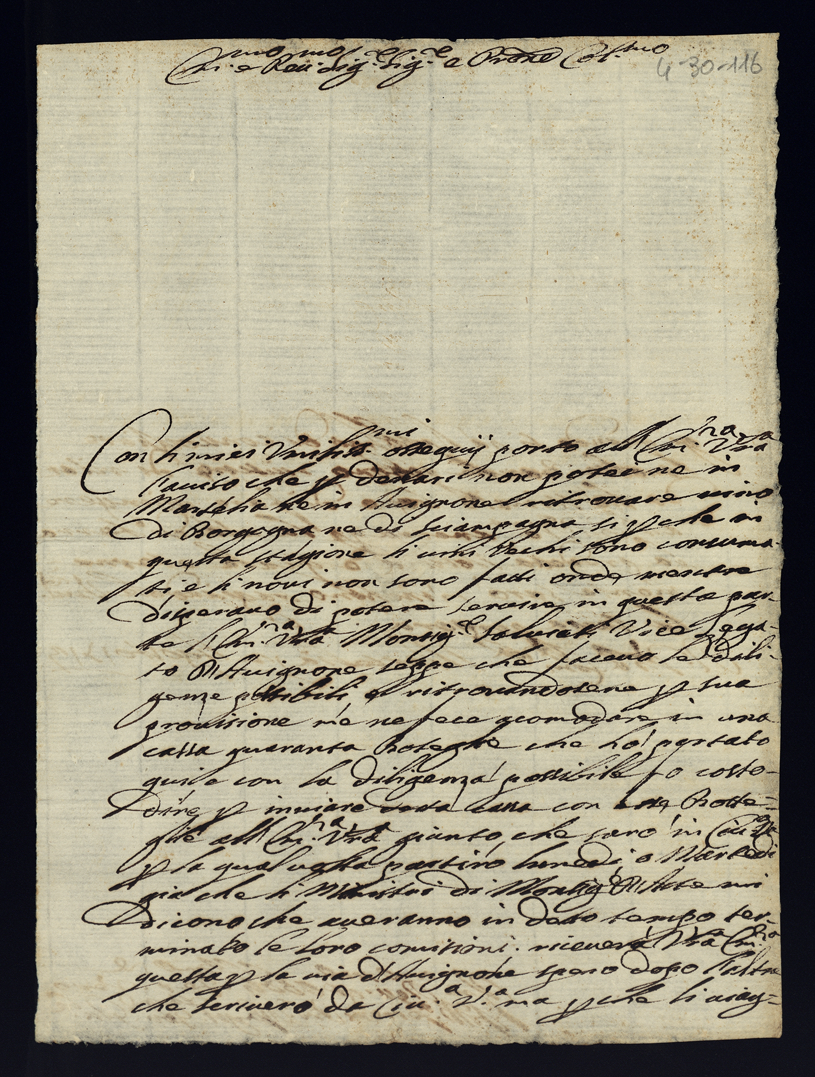 Em.mo e Rev.mo Sig.re Sig.re e Prone Col.mo
4-30-116
Con li miei Umiliss.mi ossequij porto all'Em.za V.ra
l'aviso che p denari non potei ne in
Marselia ne in Avignone ritrovare vino
di Borgogna ne di sciampagna si p che in
questa stagione li vini vechi sono consuma-
ti e li novi non sono fatti onde mentre
disperavo di potere servire in questa par-
te l'Em.za V.ra Monsig.re Salviati Vice Lega-
to d'Avignone seppe che facevo le dili-
genze possibili, e ritrovandosene p sua
provisione me ne fece acomodare in una
cassa quaranta boteglie che hò portato
qui e con la diligenza possibile fo costo-
dire p inviare detta cassa con botte-
glie all'Em.za V.ra giunto che sarò in Civ.a V.a
p la qual volta partirò lunedi, o Martedi
gia che li Ministri di Monsig.re d'Aste mi
dicono che averanno in deto tempo ter-
minato le loro comisioni. riceverà V.ra Em.za
questa p la via d'Avignone spero dopo l'altra
che scriverò da Civ.a V.a ma p che li viag-